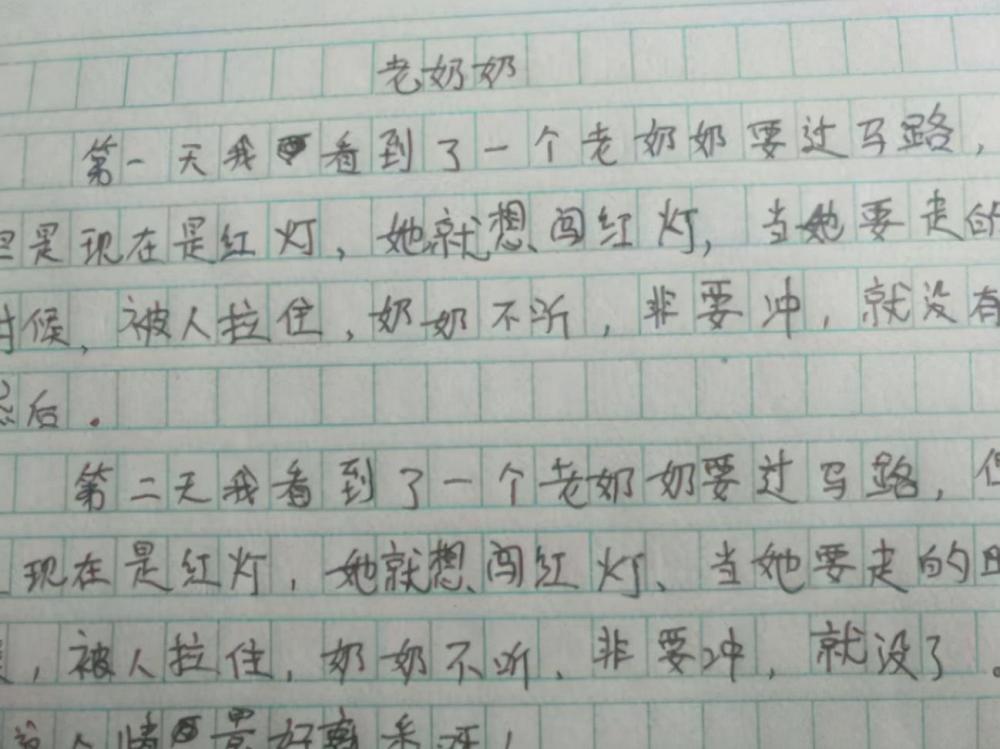 老奶奶
第一天我看到了一个老奶奶要过马路，
但是现在是红灯，她就想闯红灯，当她要走的
时候，被人拉住，奶奶不听，非要冲，就没有
然后．
第二天我看到了一个老奶奶要过马路，但
现在是红灯，她就想闯红灯、当她要走的时
，被人拉住，奶奶不听．非要冲，就没了。
人情景好离